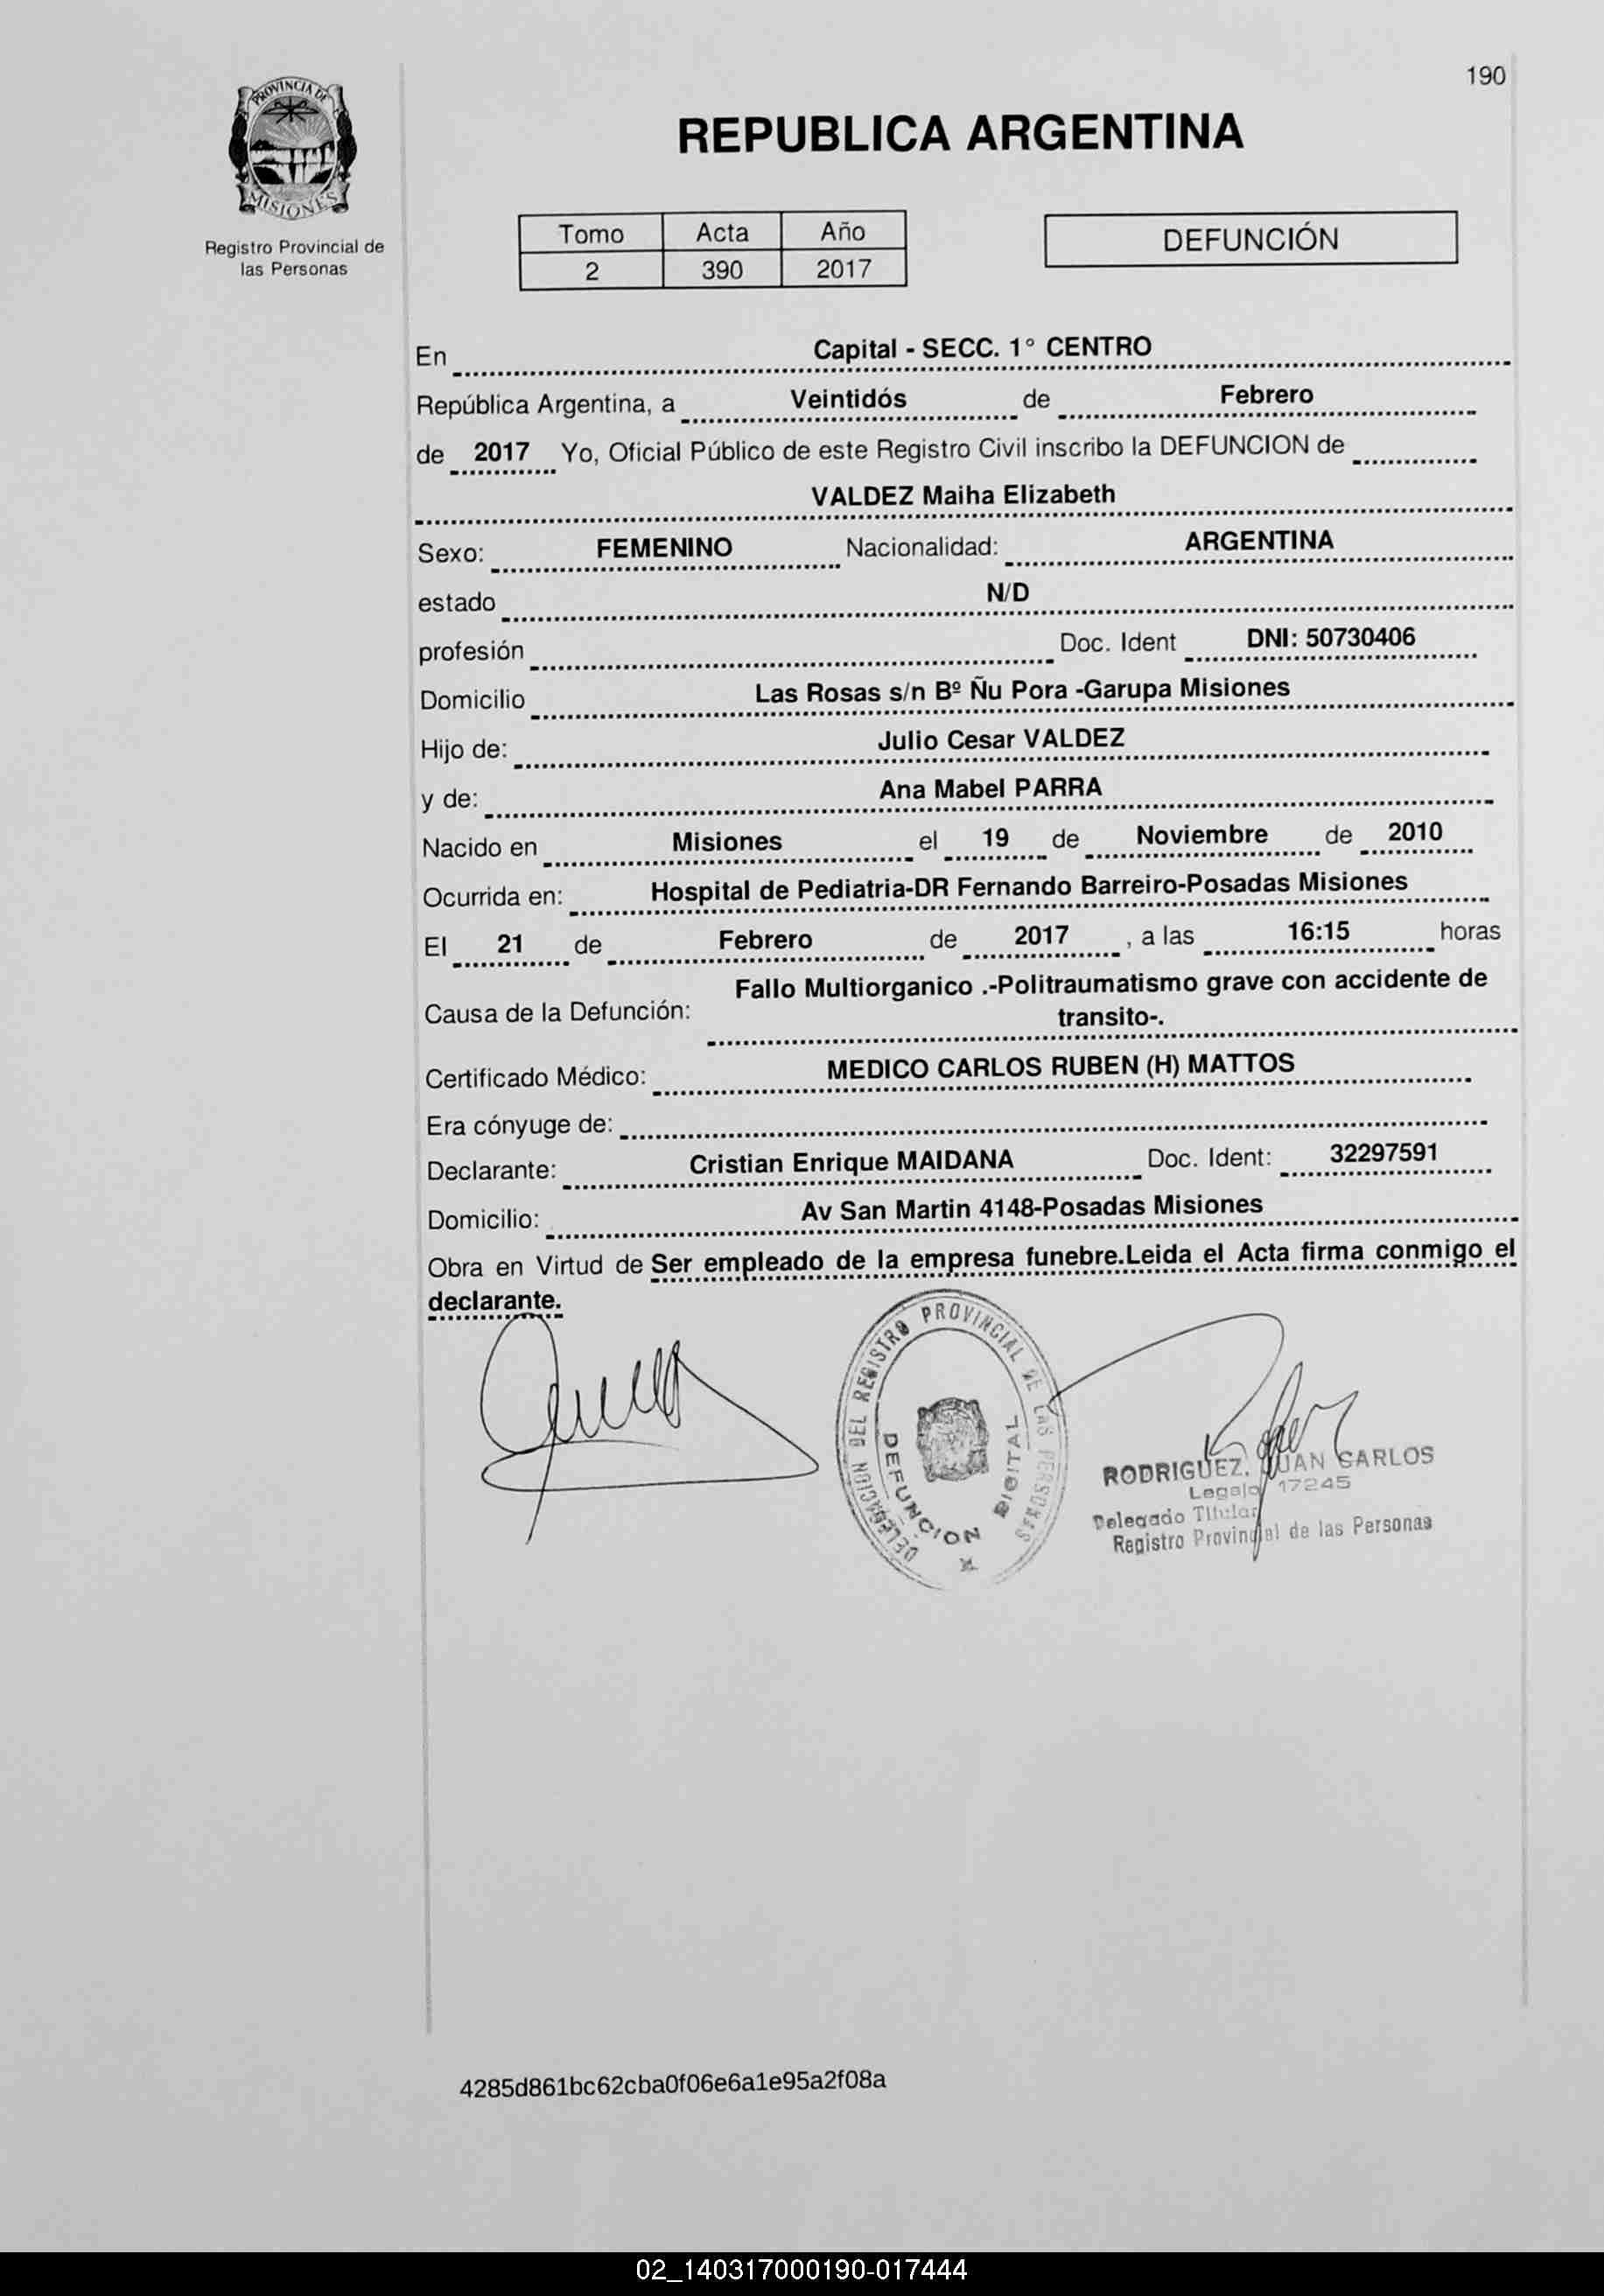 190
PROVINCIA DE
MISIONES
Registro Provincial de
las Personas
REPUBLICA ARGENTINA
Tomo Acta Año
2 390 2017
DEFUNCIÓN
En Capital - SECC. 1° CENTRO
República Argentina, a Veintidós de Febrero
de 2017 Yo, Oficial Público de este Registro Civil inscribo la DEFUNCION de
VALDEZ Maiha Elizabeth
Sexo: FEMENINO Nacionalidad: ARGENTINA
estado N/D
profesión Doc. Ident DNI: 50730406
Domicilio Las Rosas s/n Bº Ñu Pora -Garupa Misiones
Hijo de: Julio Cesar VALDEZ
y de: Ana Mabel PARRA
Nacido en Misiones el 19 de Noviembre de 2010
Ocurrida en: Hospital de Pediatria-DR Fernando Barreiro-Posadas Misiones
El 21 de Febrero de 2017 , a las 16:15 horas
Causa de la Defunción: Fallo Multiorganico .-Politraumatismo grave con accidente de
transito-.
Certificado Médico: MEDICO CARLOS RUBEN (H) MATTOS
Era cónyuge de:
Declarante: Cristian Enrique MAIDANA Doc. Ident: 32297591
Domicilio: Av San Martin 4148-Posadas Misiones
Obra en Virtud de Ser empleado de la empresa funebre.Leida el Acta firma conmigo el
declarante.
DELEGACION DEL REGISTRO PROVINCIAL DE LAS PERSONAS
DEFUNCION DIGITAL
RODRIGUEZ, JUAN CARLOS
Legajo 17245
Delegado Titular
Registro Provincial de las Personas
4285d861bc62cba0f06e6a1e95a2f08a
02_140317000190-017444